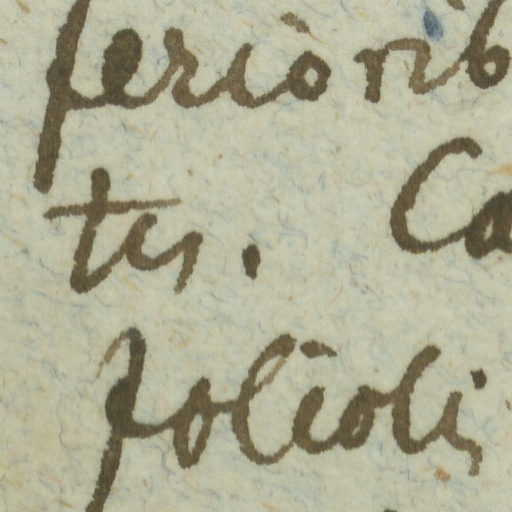 feriorib
tis. Ca
foliolis